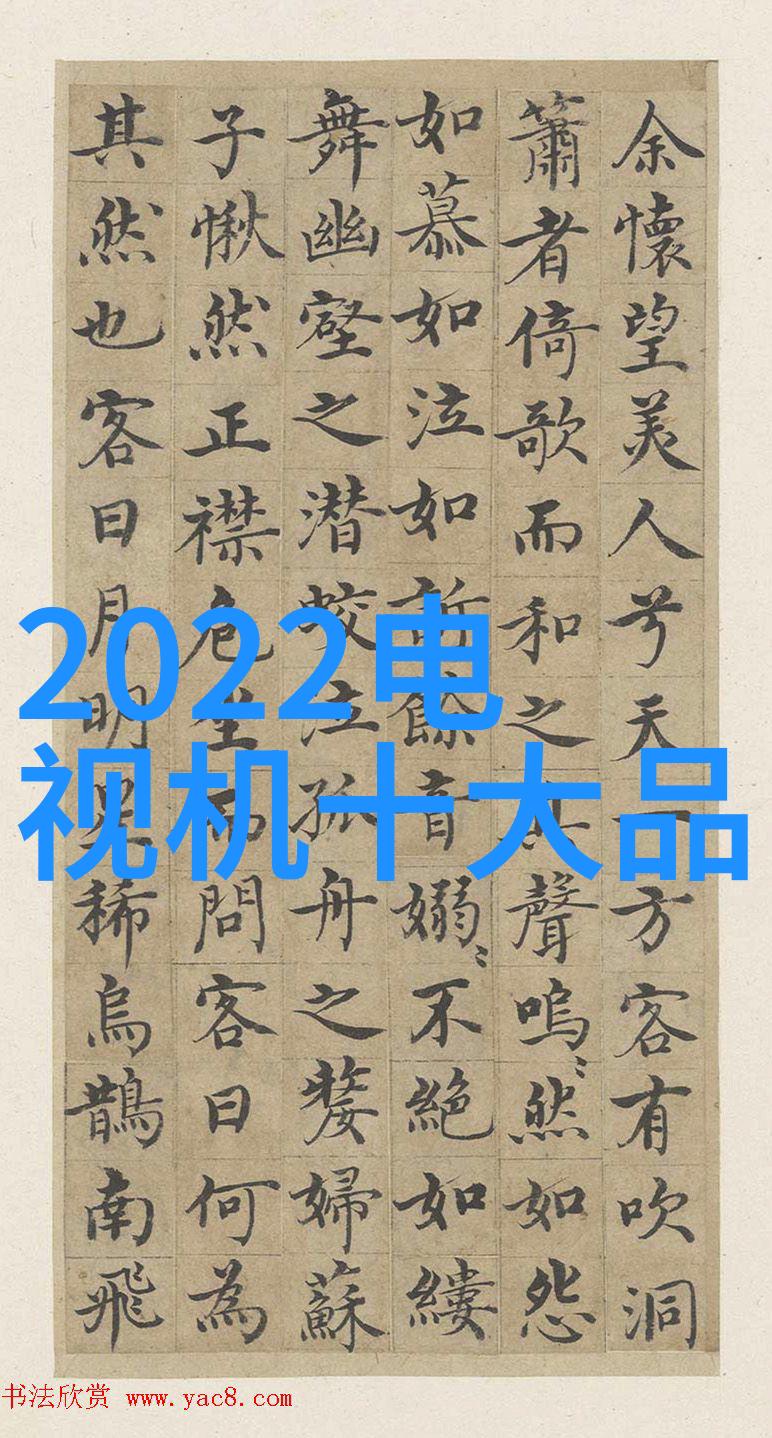 余懷望美人兮天一方客有吹洞
簫者倚歌而和之其聲嗚〻然如怨
如慕如泣如訴餘音嫋〻不絕如縷
舞幽壑之潜蛟泣孤舟之嫠婦蘇
子愀然正襟危坐而問客曰何為
其然也客曰月明星稀烏鵲南飛
2022电
视机十大品
书法欣赏 www.yac8.com